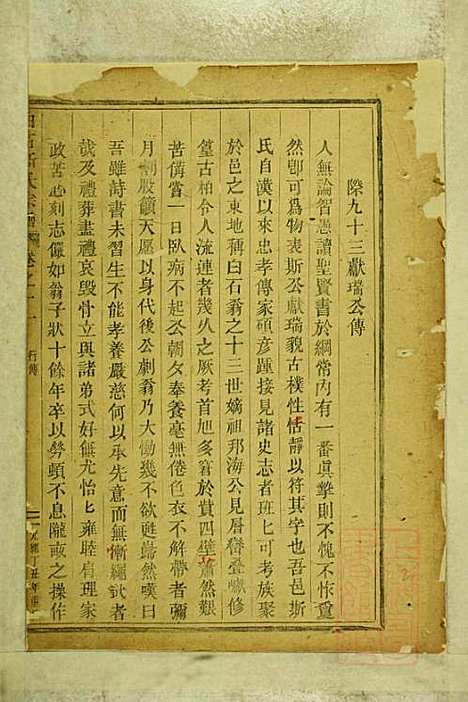 隙九十三獻瑞公傳
人無論智愚讀聖賢書於綱常內有一番眞摯則不愧不怍
然卽可爲物表斯公獻瑞貌古樸性恬靜以符其字也吾邑斯
氏自漢以來忠孝傳家碩彥踵接見諸史志者班匕可考族聚
於邑之東地稱白石翁之十三世嫡祖邦海公見層巒疊巘修
篁古柏令人流連者幾久之厥考首旭多窘於貲四壁蕭然艱
苦備嘗一日臥病不起公朝夕奉養毫無倦色衣不解帶者彌
月刲股籲天愿以身代後公剌翁乃大慟幾不欲甦喟然嘆曰
吾雖詩書未習生不能孝養嚴慈何以承先意而無慚繩武者
哉及禮葬盡禮哀毀骨立與諸弟式好無尤怡匕雍睦自理家
政苦志刻志儼如翁子狀十餘年卒以勞頓不息隴畝之操作
斯氏宗譜 卷之 行傳
丁丑年重